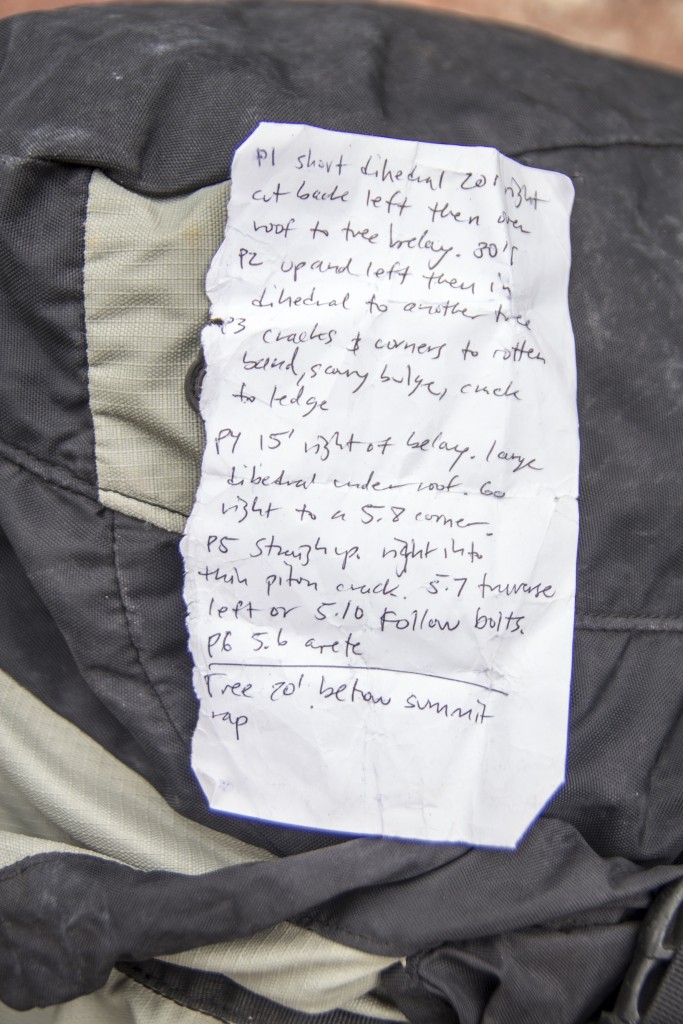 P1 short dihedral 20' right
cut back left then over
roof to tree belay. 80'
P2 up and left then in
dihedral to another tree
P3 cracks & corners to rotten
band, scary bulge, crack
to ledge
P4 15' right of belay. large
dihedral under roof. Go
right to a 5.8 corner.
P5 straigh up. right into
thin piton crack. 5.7 traverse
left or 5.10 Follow bolts.
P6 5.6 arete
Tree 20' below summit
rap